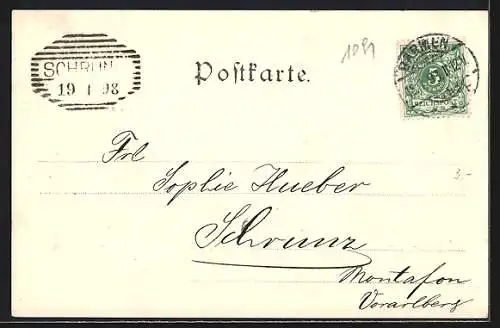 SCHRUNS
19 1 98
1081
Postkarte.
BARMEN
5
REICHSPOST
3.-
Frl
Sophie Hueber
Schrunz
Montafon
Vorarlberg